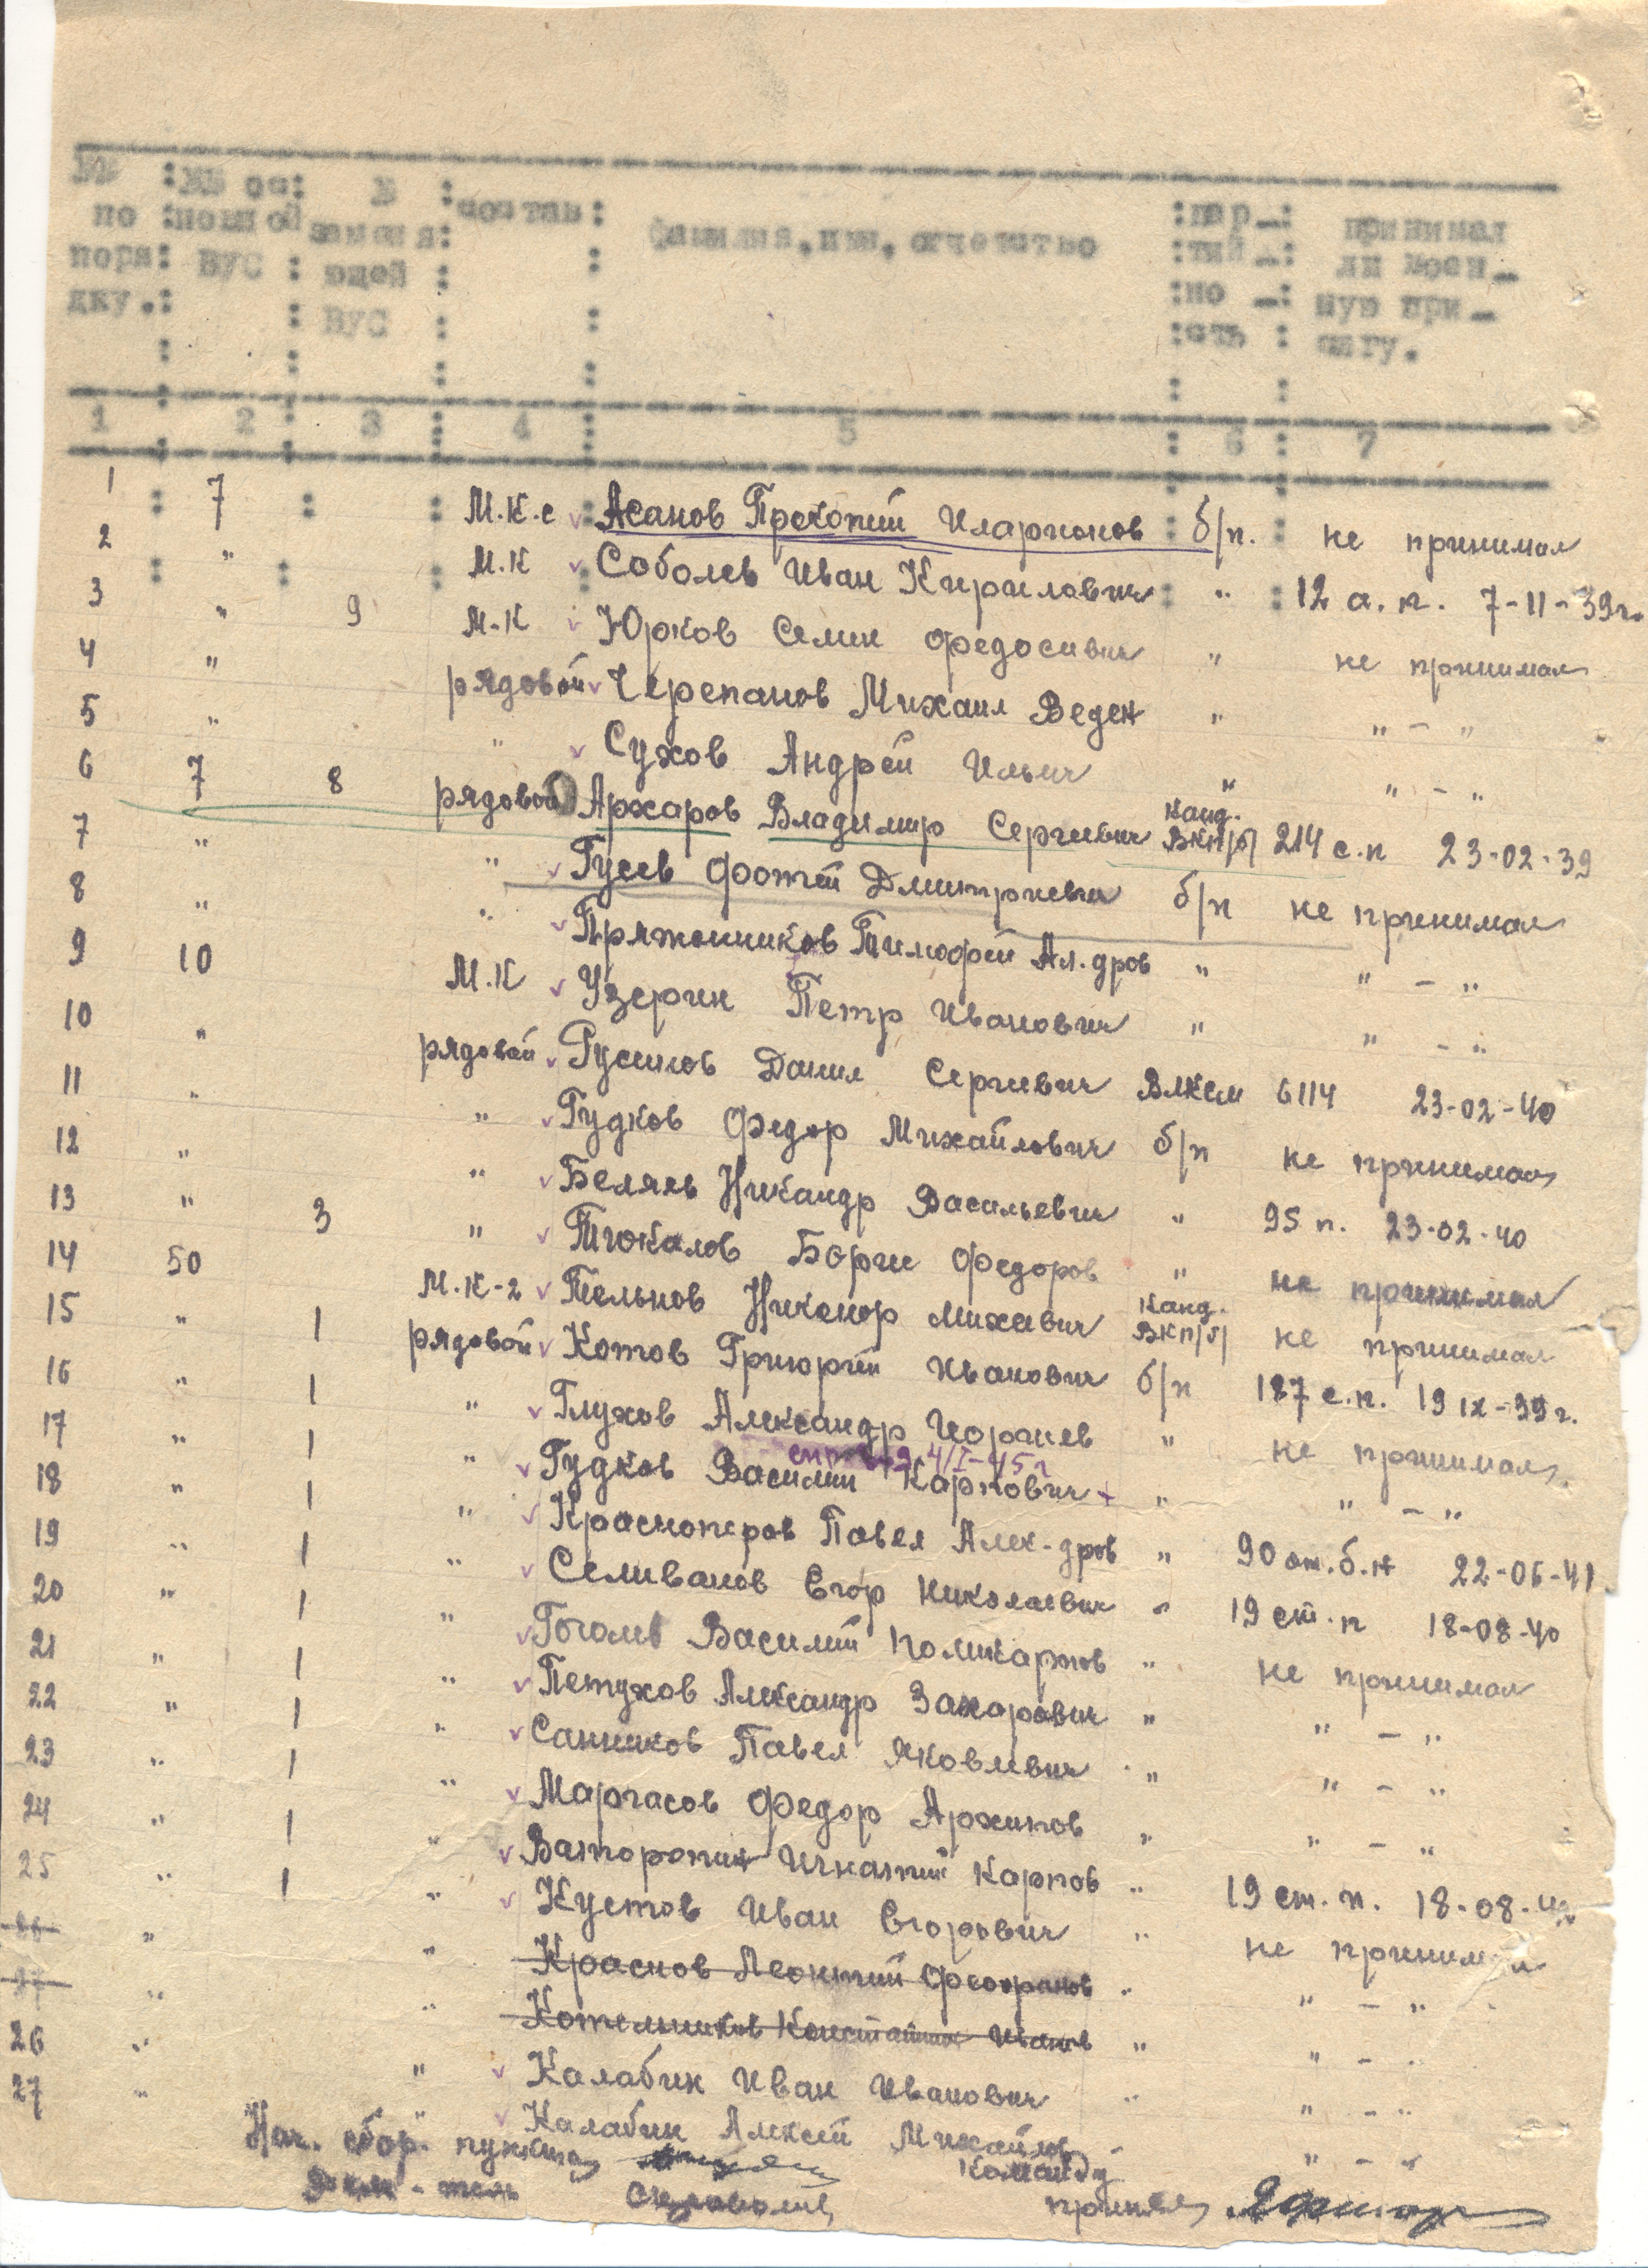 №№ : №№ ос : № : состав : фамилия, имя, отчество : пар- : принимал
по : новной : заменя : : тий- : ли воен-
поря : ВУС : ющей : : но - : ную при-
дку. : : ВУС : : сть : сягу.
1 : 2 : 3 : 4 : 5 : 6 : 7
1 7 М.К.с Асанов Прокопий Иларионов б/п. не принимал
2 " М.К Соболев Иван Кирилович " 12 а.п. 7-11-39г.
3 " 9 М.К Юрков Семен Федосивич " не принимал
4 " рядовой Черепанов Михаил Веден " " - "
5 " " Сухов Андрей Ильич " " - "
6 7 8 рядовой Архаров Владимир Сергиевич Канд. ВКП/б/ 214 с.п 23-02-39
7 " " Гусев Фотей Дмитриевич б/п не принимал
8 " " Пряженников Тимофей Ал.дров " " - "
9 10 М.К Узерин Петр Иванович " " - "
10 " рядовой Русинов Данил Сергиевич Влксм 6114 23-02-40
11 " " Гудков Федор Михайлович б/п не принимал
12 " " Беляев Никандр Васильевич " 95 п. 23-02-40
13 " 3 " Тюкалов Борис Федоров " не принимал
14 50 М.К-2 Тельнов Никонор Михевич Канд. ВКП/б/ не принимал
15 " 1 рядовой Котов Григорий Иванович б/п 187 с.п. 19 IX-39г.
16 " 1 " Глухов Александр Иоргиев " не принимал
4/I-45г
17 " 1 " Гудков Василий Карпович " " - "
18 " 1 " Красноперов Павел Алек-дров " 90 от.б.н 22-06-41
19 " 1 " Селиванов Егор Николаевич " 19 ст.п 18-08-40
20 " 1 " Гоголев Василий Поликарпов " не принимал
21 " 1 " Петухов Александр Захарович " " - "
22 " 1 " Санников Павел Яковлевич " " - "
23 " 1 " Маргасов Федор Архипов " " - "
24 " 1 " Ваторопин Игнатий Карпов " 19 ст.п. 18-08-40
25 " 1 " Кустов Иван Егорович " не принимал
26 " " Краснов Леонтий Феофанов " " - "
27 " " Котельников Константин Иванов " " - "
26 " " Калабин Иван Иванович " " - "
27 " " Калабин Алексей Михайлов " " - "
Нач. сбор. пункта Команду
принял